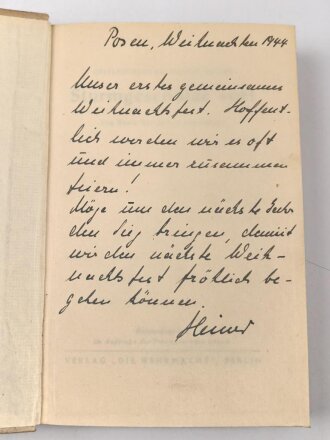 Posen, Weihnachten 1944
Unser erstes gemeinsames
Weihnachtsfest. Hoffent-
lich werden wir es oft
und immer zusammen
feiern!
Möge uns das nächste Jahr
den Sieg bringen, damit
wir das nächste Weih-
nachtsfest fröhlich be-
gehen können.
Heiner
VERLAG „DIE WEHRMACHT“, BERLIN